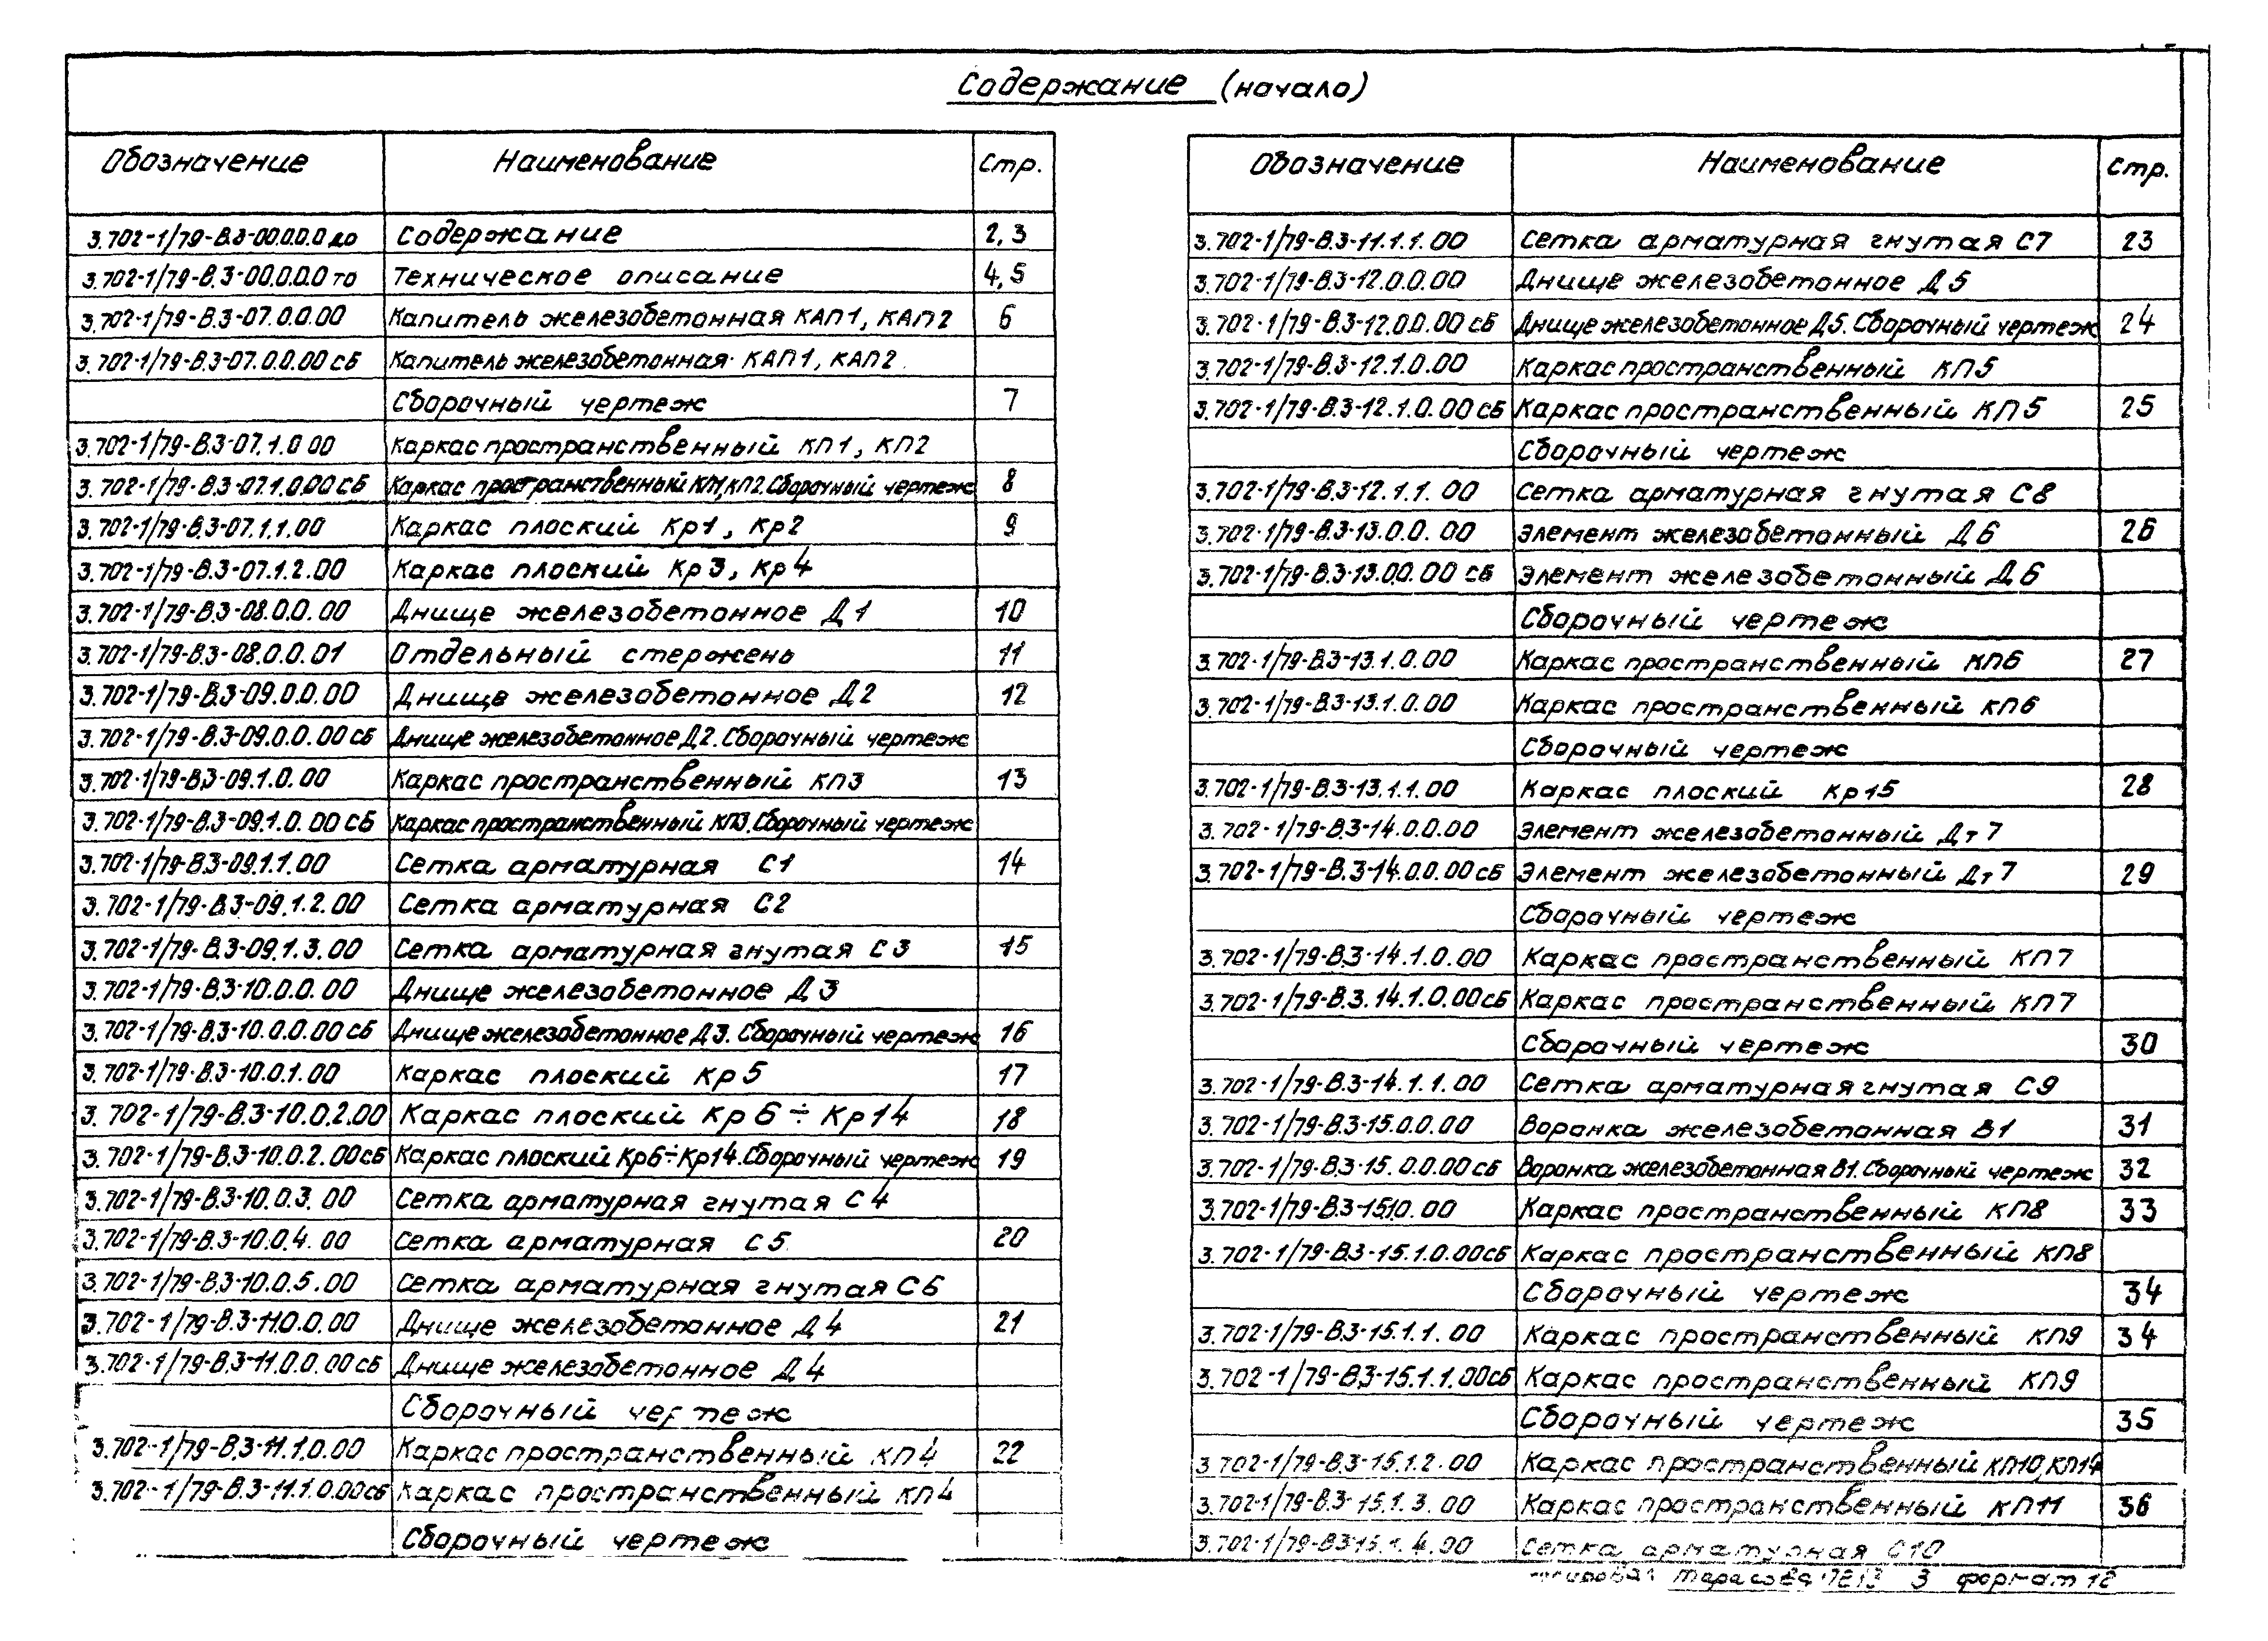 Содержание (начало)
Обозначение Наименование Стр.
3.702-1/79-В.3-00.0.0.0 до Содержание 2,3
3.702-1/79-В.3-00.0.0.0 то Техническое описание 4,5
3.702-1/79-В.3-07.0.0.00 Капитель железобетонная КАП1, КАП2 6
3.702-1/79-В.3-07.0.0.00 сб Капитель железобетонная КАП1, КАП2
Сборочный чертеж 7
3.702-1/79-В.3-07.1.0 00 Каркас пространственный КП1, КП2
3.702-1/79-В.3-07.1.0.00 сб Каркас пространственный КП1, КП2. Сборочный чертеж 8
3.702-1/79-В.3-07.1.1.00 Каркас плоский Кр1, Кр2 9
3.702-1/79-В.3-07.1.2.00 Каркас плоский Кр3, Кр4
3.702-1/79-В.3-08.0.0.00 Днище железобетонное Д1 10
3.702-1/79-В.3-08.0.0.01 Отдельный стержень 11
3.702-1/79-В.3-09.0.0.00 Днище железобетонное Д2 12
3.702-1/79-В.3-09.0.0.00 сб Днище железобетонное Д2. Сборочный чертеж
3.702-1/79-В.3-09.1.0.00 Каркас пространственный КП3 13
3.702-1/79-В.3-09.1.0.00 сб Каркас пространственный КП3. Сборочный чертеж
3.702-1/79-В.3-09.1.1.00 Сетка арматурная С1 14
3.702-1/79-В.3-09.1.2.00 Сетка арматурная С2
3.702-1/79-В.3-09.1.3.00 Сетка арматурная гнутая С3 15
3.702-1/79-В.3-10.0.0.00 Днище железобетонное Д3
3.702-1/79-В.3-10.0.0.00 сб Днище железобетонное Д3. Сборочный чертеж 16
3.702-1/79-В.3-10.0.1.00 Каркас плоский Кр5 17
3.702-1/79-В.3-10.0.2.00 Каркас плоский Кр6÷Кр14 18
3.702-1/79-В.3-10.0.2.00 сб Каркас плоский Кр6÷Кр14. Сборочный чертеж 19
3.702-1/79-В.3-10.0.3.00 Сетка арматурная гнутая С4
3.702-1/79-В.3-10.0.4.00 Сетка арматурная С5 20
3.702-1/79-В.3-10.0.5.00 Сетка арматурная гнутая С6
3.702-1/79-В.3-11.0.0.00 Днище железобетонное Д4 21
3.702-1/79-В.3-11.0.0.00 сб Днище железобетонное Д4
Сборочный чертеж
3.702-1/79-В.3-11.1.0.00 Каркас пространственный КП4 22
3.702-1/79-В.3-11.1.0.00 сб Каркас пространственный КП4
Сборочный чертеж
Обозначение Наименование Стр.
3.702-1/79-В.3-11.1.1.00 Сетка арматурная гнутая С7 23
3.702-1/79-В.3-12.0.0.00 Днище железобетонное Д5
3.702-1/79-В.3-12.0.0.00 сб Днище железобетонное Д5. Сборочный чертеж 24
3.702-1/79-В.3-12.1.0.00 Каркас пространственный КП5
3.702-1/79-В.3-12.1.0.00 сб Каркас пространственный КП5 25
Сборочный чертеж
3.702-1/79-В.3-12.1.1.00 Сетка арматурная гнутая С8
3.702-1/79-В.3-13.0.0.00 Элемент железобетонный Д6 26
3.702-1/79-В.3-13.0.0.00 сб Элемент железобетонный Д6
Сборочный чертеж
3.702-1/79-В.3-13.1.0.00 Каркас пространственный КП6 27
3.702-1/79-В.3-13.1.0.00 Каркас пространственный КП6
Сборочный чертеж
3.702-1/79-В.3-13.1.1.00 Каркас плоский Кр15 28
3.702-1/79-В.3-14.0.0.00 Элемент железобетонный Дт7
3.702-1/79-В.3-14.0.0.00 сб Элемент железобетонный Дт7 29
Сборочный чертеж
3.702-1/79-В.3-14.1.0.00 Каркас пространственный КП7
3.702-1/79-В.3.14.1.0.00 сб Каркас пространственный КП7
Сборочный чертеж 30
3.702-1/79-В.3-14.1.1.00 Сетка арматурная гнутая С9
3.702-1/79-В.3-15.0.0.00 Воронка железобетонная В1 31
3.702-1/79-В.3-15.0.0.00 сб Воронка железобетонная В1. Сборочный чертеж 32
3.702-1/79-В.3-15.1.0.00 Каркас пространственный КП8 33
3.702-1/79-В.3-15.1.0.00 сб Каркас пространственный КП8
Сборочный чертеж 34
3.702-1/79-В.3-15.1.1.00 Каркас пространственный КП9 34
3.702-1/79-В.3-15.1.1.00 сб Каркас пространственный КП9
Сборочный чертеж 35
3.702-1/79-В.3-15.1.2.00 Каркас пространственный КП10, КП14
3.702-1/79-В.3-15.1.3.00 Каркас пространственный КП11 36
3.702-1/79-В3-15.1.4.00 Сетка арматурная С10
3 формат 12